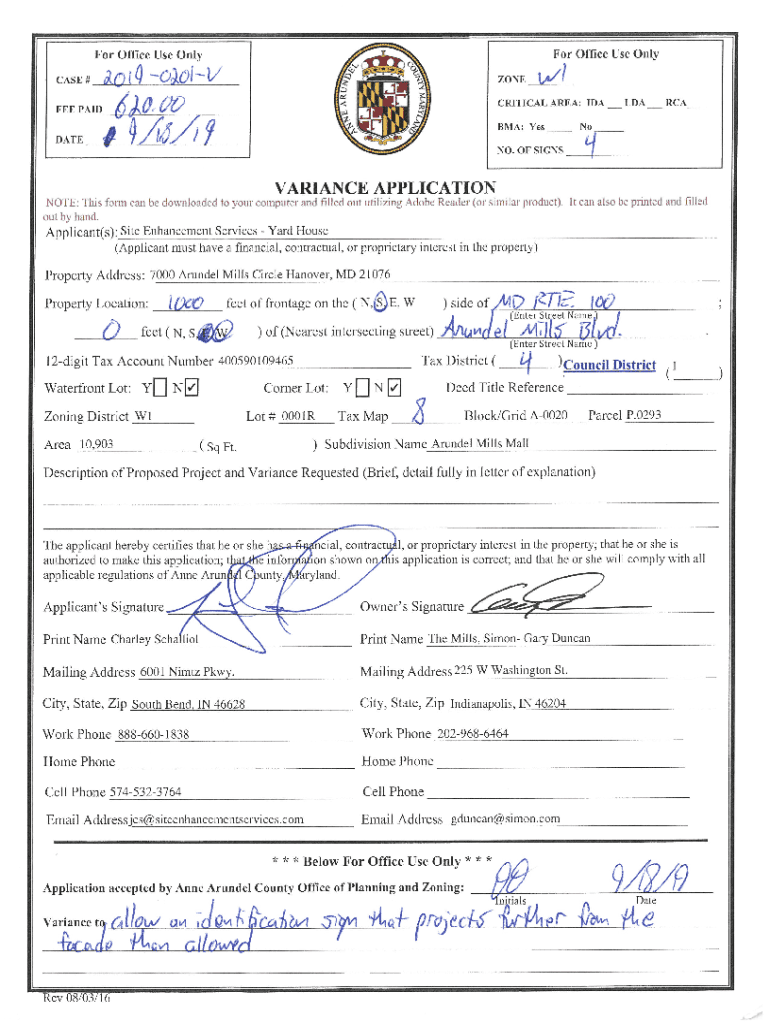 For Office Use Only
CASE # 2019-0201-V
FEE PAID 620.00
DATE 9/18/19
ANNE ARUNDEL COUNTY MARYLAND
For Office Use Only
ZONE W1
CRITICAL AREA: IDA ___ LDA ___ RCA
BMA: Yes ____ No ____
NO. OF SIGNS 4
VARIANCE APPLICATION
NOTE: This form can be downloaded to your computer and filled out utilizing Adobe Reader (or similar product). It can also be printed and filled
out by hand.
Applicant(s): Site Enhancement Services - Yard House
(Applicant must have a financial, contractual, or proprietary interest in the property)
Property Address: 7000 Arundel Mills Circle Hanover, MD 21076
Property Location: 1000 feet of frontage on the ( N, S, E, W ) side of MD RTE. 100 ;
(Enter Street Name)
0 feet ( N, S, E, W ) of (Nearest intersecting street) Arundel Mills Blvd.
(Enter Street Name)
12-digit Tax Account Number 400590109465 Tax District ( 4 ) Council District ( 1 )
Waterfront Lot: Y ☐ N ☑ Corner Lot: Y ☐ N ☑ Deed Title Reference
Zoning District W1 Lot # 0001R Tax Map 8 Block/Grid A-0020 Parcel P.0293
Area 10,903 ( Sq Ft. ) Subdivision Name Arundel Mills Mall
Description of Proposed Project and Variance Requested (Brief, detail fully in letter of explanation)
The applicant hereby certifies that he or she has a financial, contractual, or proprietary interest in the property; that he or she is
authorized to make this application; that the information shown on this application is correct; and that he or she will comply with all
applicable regulations of Anne Arundel County, Maryland.
Applicant's Signature Owner's Signature
Print Name Charley Schalliol Print Name The Mills, Simon- Gary Duncan
Mailing Address 6001 Nimtz Pkwy. Mailing Address 225 W Washington St.
City, State, Zip South Bend, IN 46628 City, State, Zip Indianapolis, IN 46204
Work Phone 888-660-1838 Work Phone 202-968-6464
Home Phone Home Phone
Cell Phone 574-532-3764 Cell Phone
Email Address jcs@siteenhancementservices.com Email Address gduncan@simon.com
* * * Below For Office Use Only * * *
Application accepted by Anne Arundel County Office of Planning and Zoning: 9/18/19
Initials Date
Variance to allow an identification sign that projects further from the
facade than allowed
Rev 08/03/16